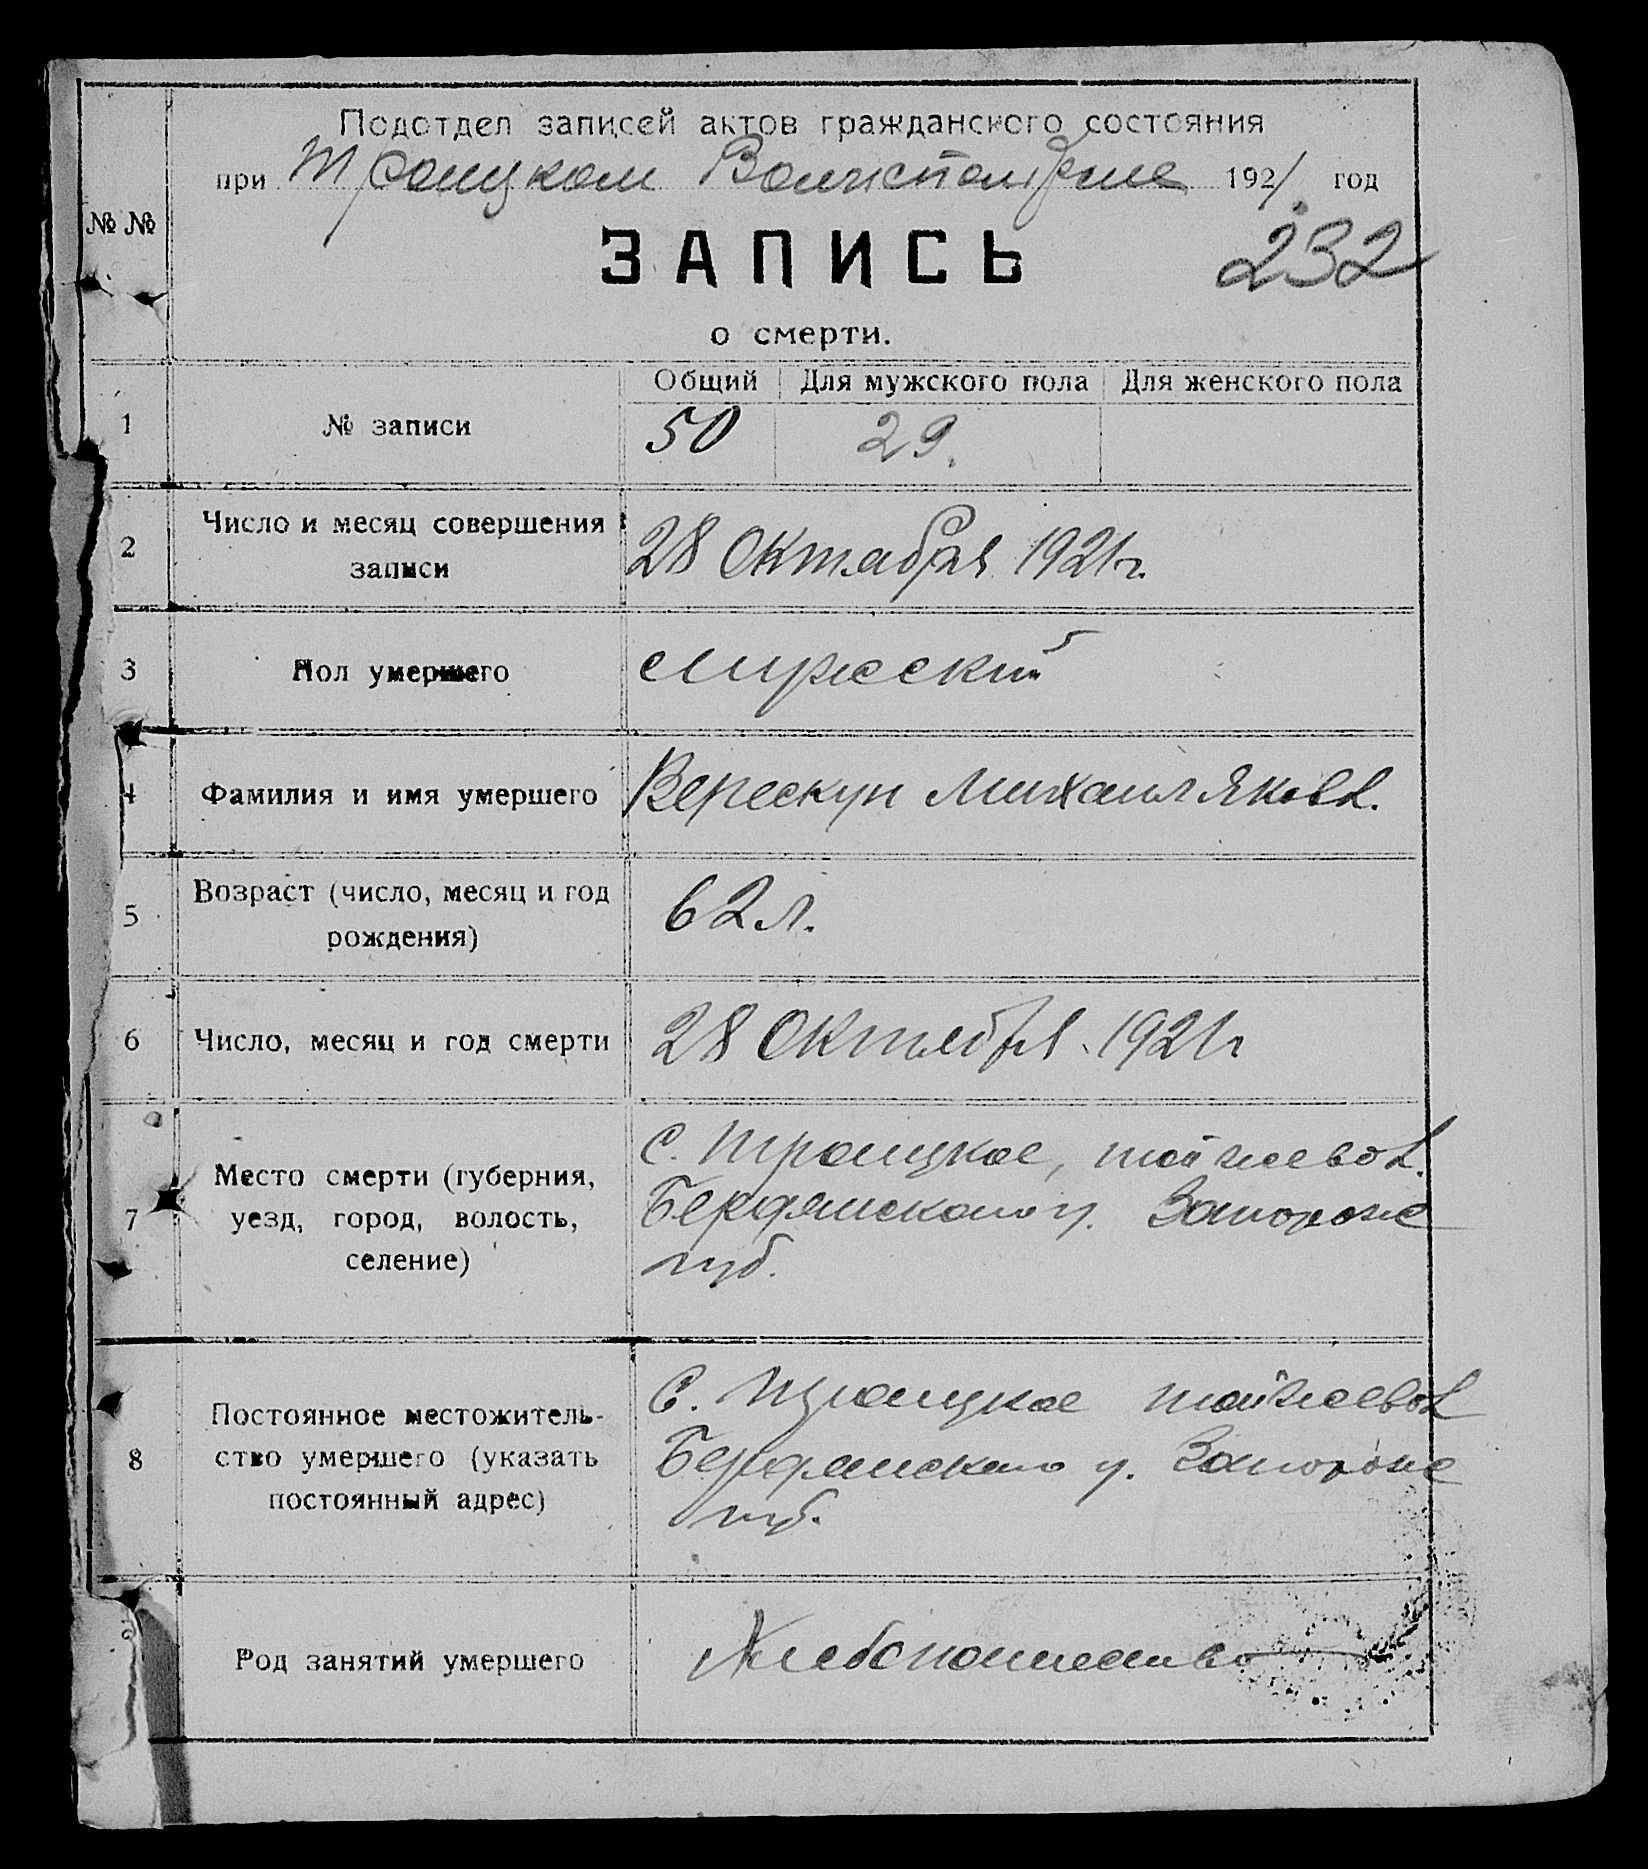 Подотдел записей актов гражданского состояния
при Троицком Волисполкоме 1921 год
№ №
ЗАПИСЬ
232
о смерти.
Общий Для мужского пола Для женского пола
1 № записи 50 29.
2 Число и месяц совершения
записи
28 Октября 1921 г.
3 Пол умершего мужеский
4 Фамилия и имя умершего Верескун Михаил Яковл.
5 Возраст (число, месяц и год
рождения)
62 л.
6 Число, месяц и год смерти 28 Октября 1921 г
7 Место смерти (губерния,
уезд, город, волость,
селение)
С. Троицкое, той же вол.
Бердянского у. Запорож
губ.
8 Постоянное местожитель-
ство умершего (указать
постоянный адрес)
С. Троицкое той же вол
Бердянского у. Запорож
губ.
Род занятий умершего Хлебопашество